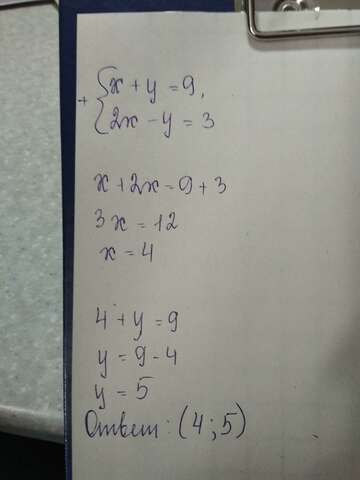 x + y = 9,
+
2x - y = 3
x + 2x = 9 + 3
3x = 12
x = 4
4 + y = 9
y = 9 - 4
y = 5
Ответ: (4; 5)